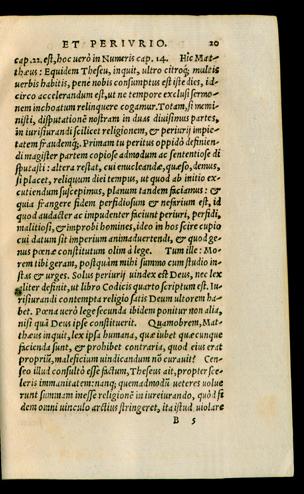 ET PERIVRIO. 20
cap. 22. est, hoc uerò in Numeris cap. 14. Hic Mat-
thæus: Equidem Theseu, inquit, ultro citroq; multis
uerbis habitis, penè nobis consumptus est iste dies, id-
circo accelerandum est, ut ne tempore exclusi sermo-
nem inchoatum relinquere cogamur. Totam, si memi-
nisti, disputationē nostram in duas diuisimus partes,
in iurisiurandi scilicet religionem, & periurij impie-
tatem fraudemq;. Primam tu peritus oppidò definien-
di magister partem copiose admodum ac sententiose di
sputasti: altera restat, cui enucleandæ, quæso, demus,
si placet, reliquum diei tempus, ut quod ab initio ex-
cutiendum suscepimus, planum tandem faciamus: &
quia frangere fidem perfidiosum & nefarium est, id
quod audacter ac impudenter faciunt periuri, perfidi,
malitiosi, & improbi homines, ideo in hos scire cupio
cui datum sit imperium animaduertendi, & quod ge-
nus pœnæ constitutum olim à lege. Tum ille: Mo-
rem tibi geram, postquàm mihi summo cum studio in-
stas & urges. Solus periurij uindex est Deus, nec lex
aliter definit, ut libro Codicis quarto scriptum est. Iu-
risiurandi contempta religio satis Deum ultorem ha-
bet. Pœna uerò lege secunda ibidem ponitur non alia,
nisi quā Deus ipse constituerit. Quamobrem, Mat-
thæus inquit, lex ipsa humana, quæ iubet quæcunque
facienda sunt, & prohibet contraria, quod eius erat
propriū, maleficium uindicandum nō curauit? Cen-
seo illud consultò esse factum, Theseus ait, propter sce-
leris immanitatem: nanq; quemadmodū ueteres uolue
runt summam inesse religionē in iureiurando, quòd fi
dem omni uinculo arctius stringeret, ita istud uiolare
B 5